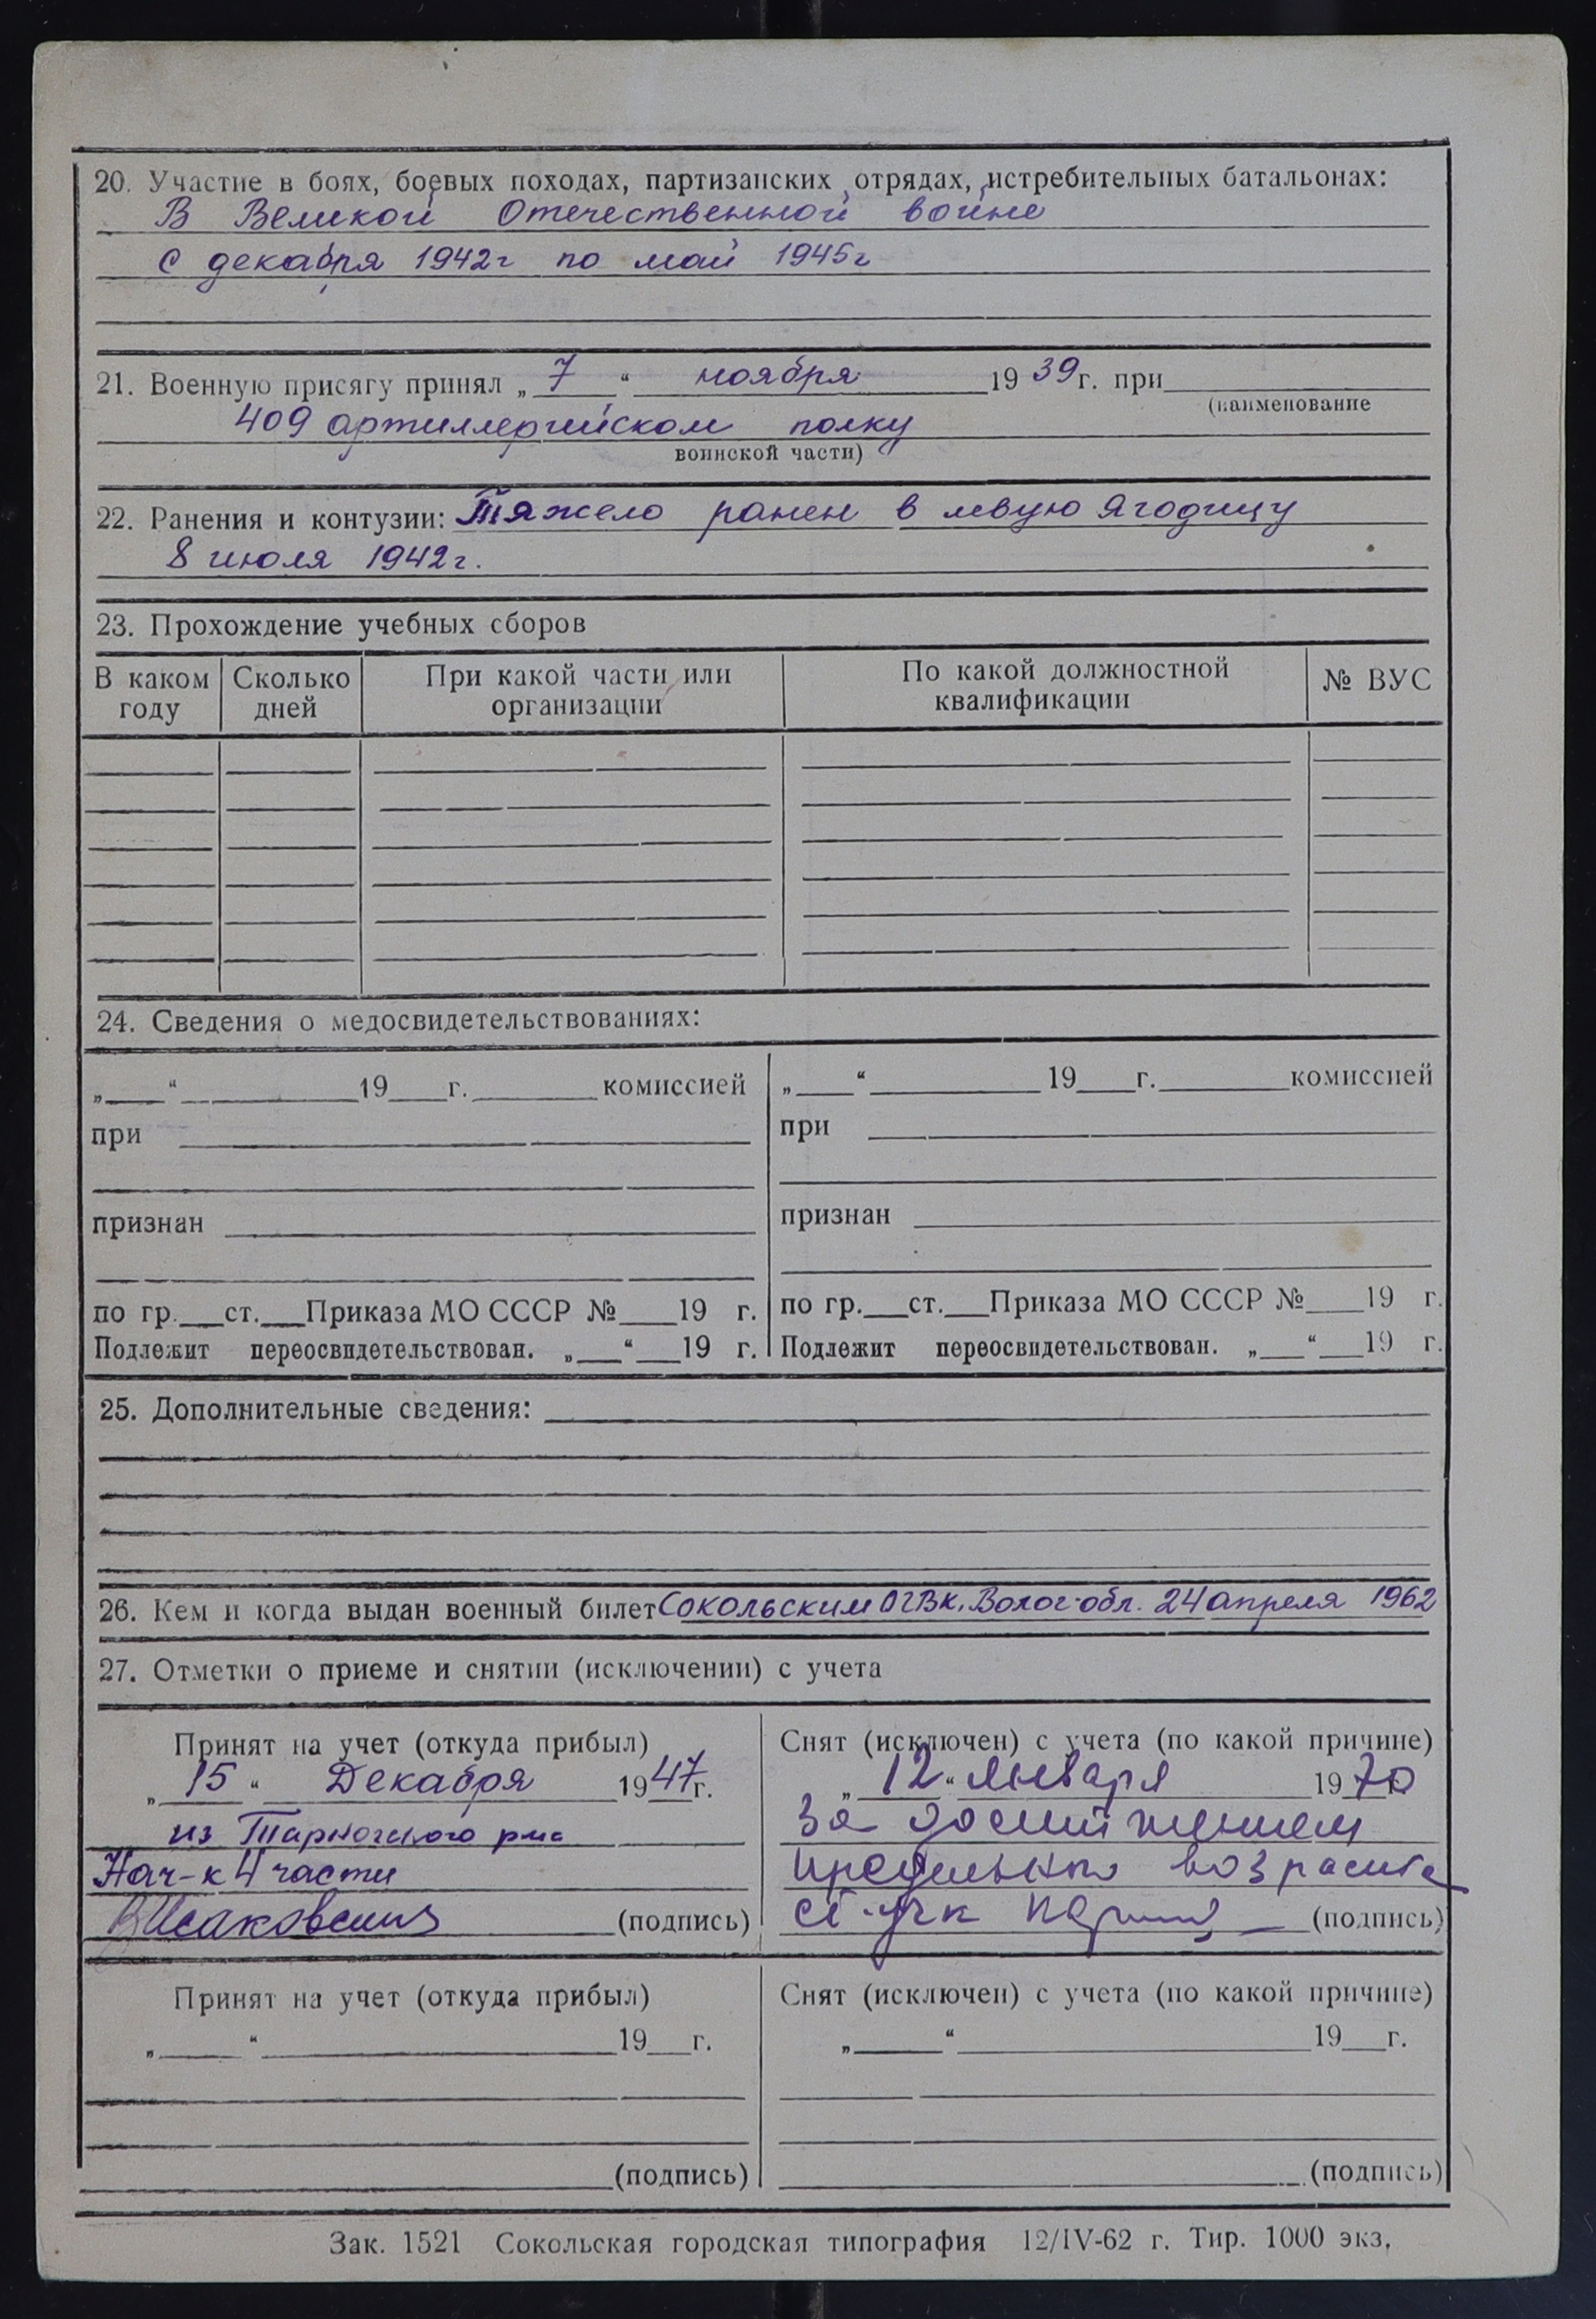 20. Участие в боях, боевых походах, партизанских отрядах, истребительных батальонах:
В Великой Отечественной войне
с декабря 1942г по май 1945г
21. Военную присягу принял „ 7 “ ноября 1939г. при
(наименование
409 артиллерийском полку
воинской части)
22. Ранения и контузии: Тяжело ранен в левую ягодицу
8 июля 1942г.
23. Прохождение учебных сборов
В каком году Сколько дней При какой части или организации По какой должностной квалификации № ВУС
24. Сведения о медосвидетельствованиях:
„___“ ______19__г.______комиссией „___“ ______19__г.______комиссией
при при
признан признан
по гр.__ст.__Приказа МО СССР №___19 г. по гр.__ст.__Приказа МО СССР №___19 г.
Подлежит переосвидетельствован. „__“__19 г. Подлежит переосвидетельствован. „__“__19 г.
25. Дополнительные сведения:
26. Кем и когда выдан военный билет Сокольским ОГВК, Волог. обл. 24 апреля 1962
27. Отметки о приеме и снятии (исключении) с учета
Принят на учет (откуда прибыл) Снят (исключен) с учета (по какой причине)
„ 15 “ Декабря 1947г. „ 12 “ Января 1970
из Тарногского рмс За достижением
Нач-к 4 части предельного возраста
(подпись) (подпись)
Принят на учет (откуда прибыл) Снят (исключен) с учета (по какой причине)
„___“ ______19__г. „___“ ______19__г.
(подпись) (подпись)
Зак. 1521 Сокольская городская типография 12/IV-62 г. Тир. 1000 экз.